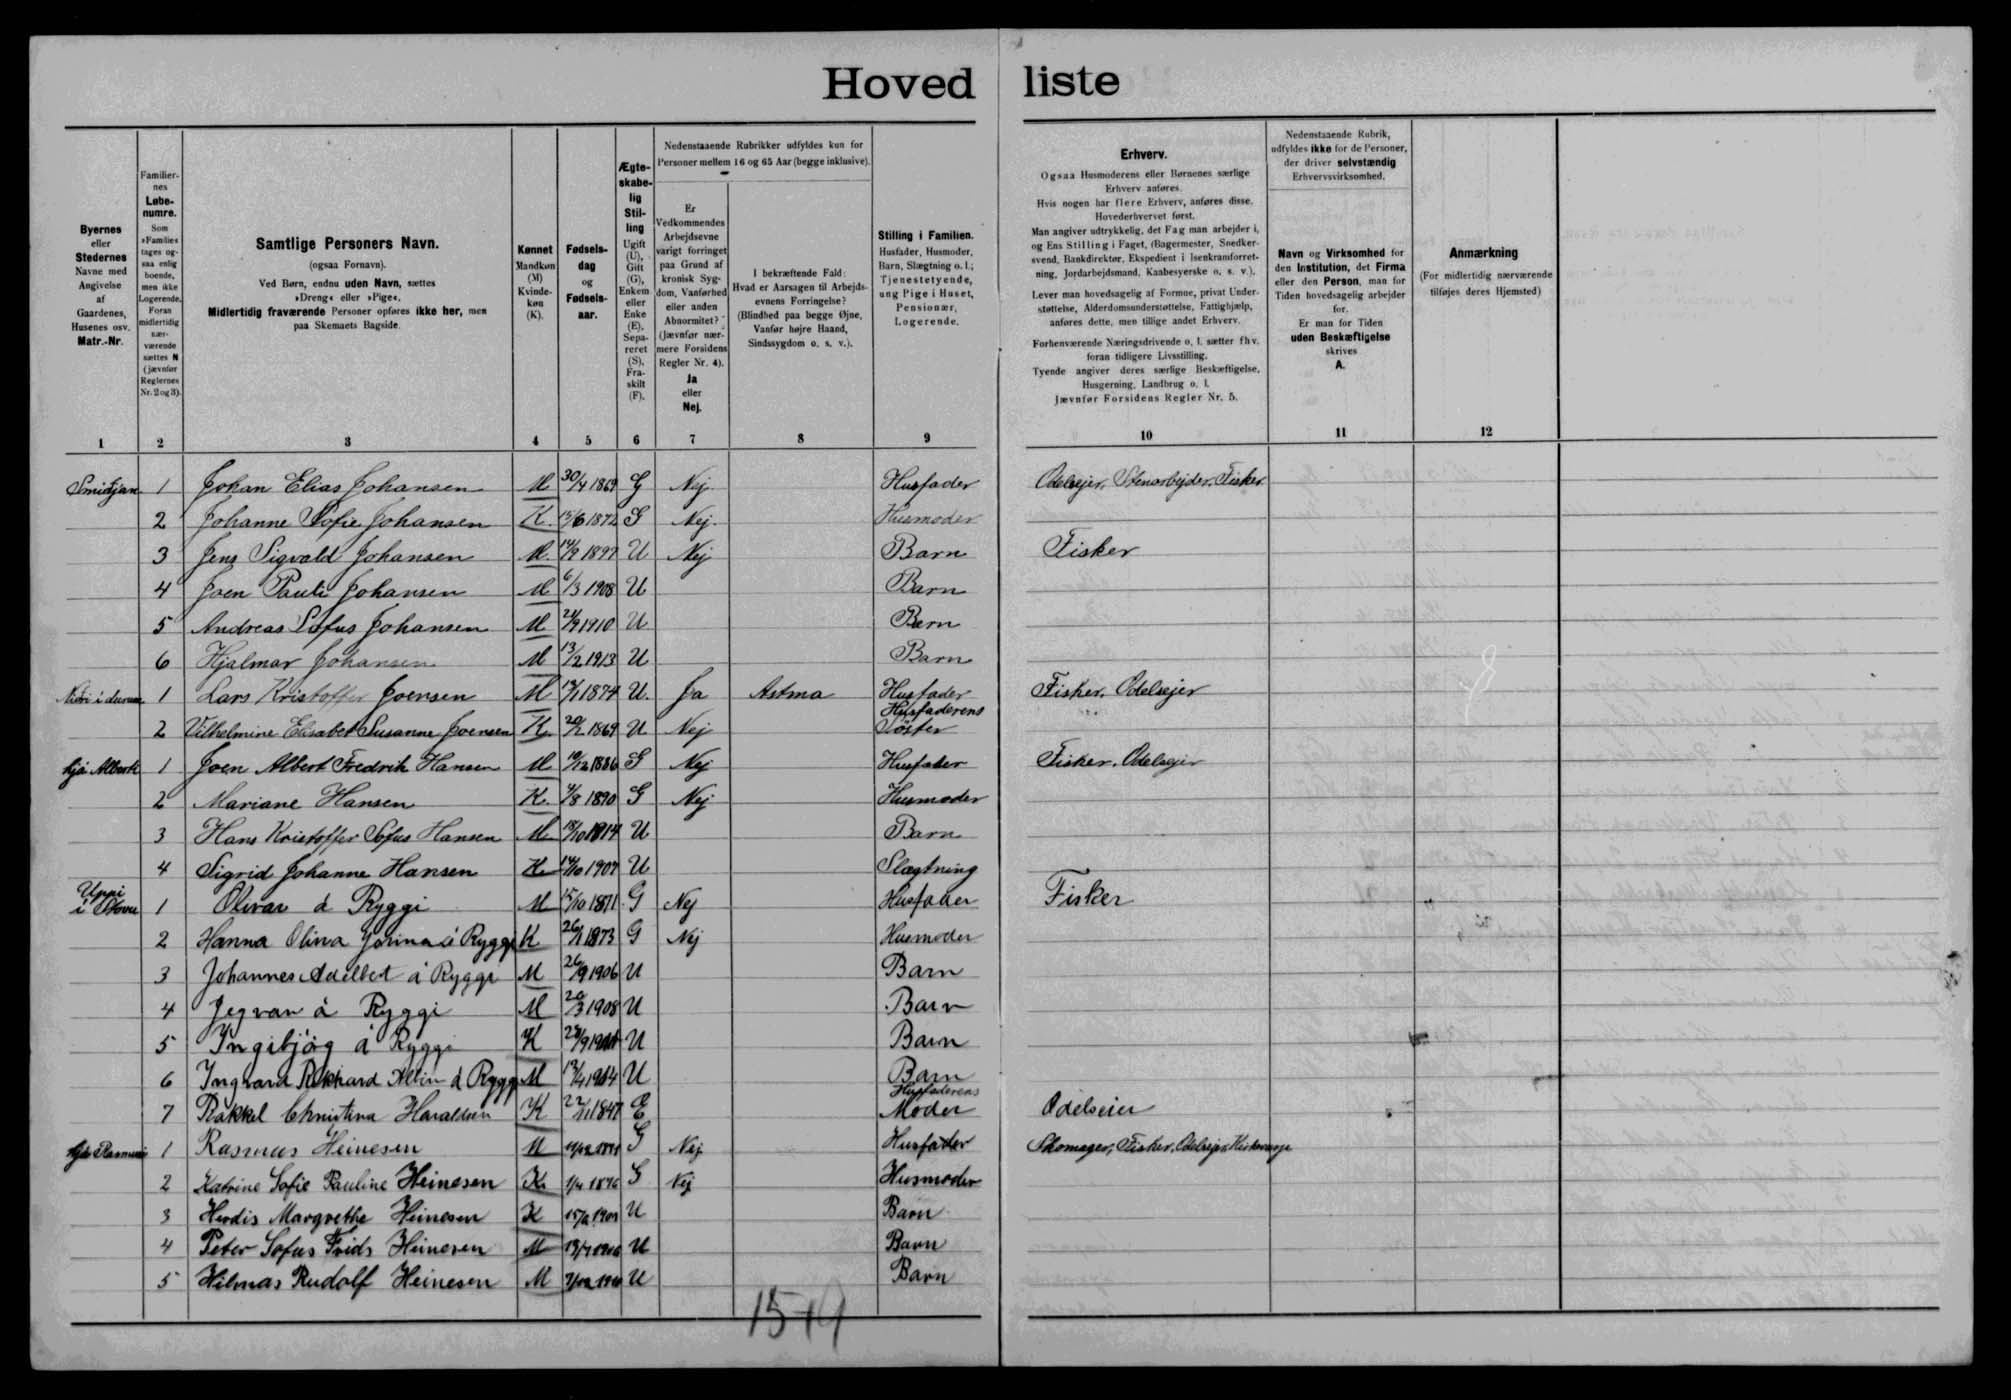 Hovedliste
Byernes
eller
Stedernes
Navne med
Angivelse
af
Gaardenes,
Husenes osv.
Matr.-Nr.
Familier-
nes
Løbe-
numre.
Som
»Familie«
tages og-
saa enlig
boende,
men ikke
Logerende.
Foran
midlertidig
nær-
værende
sættes N
(jævnfør
Reglernes
Nr. 2 og 3).
Samtlige Personers Navn.
(ogsaa Fornavn).
Ved Børn, endnu uden Navn, sættes
»Dreng« eller »Pige«.
Midlertidig fraværende Personer opføres ikke her, men
paa Skemaets Bagside.
Kønnet
Mandkøn
(M)
Kvinde-
køn
(K).
Fødsels-
dag
og
Fødsels-
aar.
Ægte-
skabe-
lig
Stil-
ling
Ugift
(U),
Gift
(G),
Enkem
eller
Enke
(E),
Sepa-
reret
(S),
Fra-
skilt
(F).
Nedenstaaende Rubrikker udfyldes kun for
Personer mellem 16 og 65 Aar (begge inklusive).
Er
Vedkommendes
Arbejdsevne
varigt forringet
paa Grund af
kronisk Syg-
dom, Vanførhed
eller anden
Abnormitet?
(Jævnfør nær-
mere Forsidens
Regler Nr. 4).
Ja
eller
Nej.
I bekræftende Fald:
Hvad er Aarsagen til Arbejds-
evnens Forringelse?
(Blindhed paa begge Øjne,
Vanfør højre Haand,
Sindssygdom o. s. v.).
Stilling i Familien.
Husfader, Husmoder,
Barn, Slægtning o. l.;
Tjenestetyende,
ung Pige i Huset,
Pensionær,
Logerende.
Erhverv.
Ogsaa Husmoderens eller Børnenes særlige
Erhverv anføres.
Hvis nogen har flere Erhverv, anføres disse.
Hovederhvervet først.
Man angiver udtrykkelig, det Fag man arbejder i,
og Ens Stilling i Faget, (Bagermester, Snedker-
svend, Bankdirektør, Ekspedient i Isenkramforret-
ning, Jordarbejdsmand, Kaabesyerske o. s. v.).
Lever man hovedsagelig af Formue, privat Under-
støttelse, Alderdomsunderstøttelse, Fattighjælp,
anføres dette, men tillige andet Erhverv.
Forhenværende Næringsdrivende o. l. sætter fhv.
foran tidligere Livsstilling.
Tyende angiver deres særlige Beskæftigelse,
Husgerning, Landbrug o. l.
Jævnfør Forsidens Regler Nr. 5.
Nedenstaaende Rubrik,
udfyldes ikke for de Personer,
der driver selvstændig
Erhvervsvirksomhed.
Navn og Virksomhed for
den Institution, det Firma
eller den Person, man for
Tiden hovedsagelig arbejder
for.
Er man for Tiden
uden Beskæftigelse
skrives
A.
Anmærkning
(For midlertidig nærværende
tilføjes deres Hjemsted)
1 2 3 4 5 6 7 8 9 10 11 12
Smidjan 1 Johan Elias Johansen M 30/4 1869 G Nej Husfader Odelsejer, Stenarbejder, Fisker
2 Johanne Sofie Johansen K. 15/6 1872 G Nej. Husmoder
3 Jens Sigvald Johansen M. U Nej Barn Fisker
4 Joen Pauli Johansen M 6/3 1908 U Barn
5 Andreas Sofus Johansen M 1910 U Barn
6 Hjalmar Johansen M 13/2 1913 U Barn
1 Lars Kristoffer Joensen M 1874 U. Ja Astma Husfader Fisker, Odelsejer
2 Vilhelmine Elisabet Susanne Joensen K. 1869 U Nej Husfaderens Søster
hjá Albert 1 Joen Albert Fredrik Hansen M 1886 G Nej Husfader Fisker, Odelsejer
2 Mariane Hansen K. 1890 G Nej Husmoder
3 Hans Kristoffer Sofus Hansen M. 18/10 1914 U Barn
4 Sigrid Johanne Hansen K. 14/10 1907 U Slægtning
Uppi i 1 Olivar á Ryggi M 15/10 1871 G Nej Husfader Fisker
2 Hanna Olina Jorina á Ryggi K 1873 G Nej Husmoder
3 Johannes Adelbert á Ryggi M 26/9 1906 U Barn
4 Jegvan á Ryggi M 20/3 1908 U Barn
5 Ingibjörg á Ryggi K U Barn
6 Ingvard Albin á Ryggi M 1914 U Barn
7 Rakkel Christina Haraldsen K 22/11 1847 E Husfaderens Moder Odelseier
hjá Rasmusi 1 Rasmus Heinesen M G Nej Husfader Skomager, Fisker, Odelsejer,
2 Katrine Sofie Pauline Heinesen K. G Nej Husmoder
3 Herdis Margrethe Heinesen K U Barn
4 Peter Sofus Heinesen M U Barn
5 Hilmas Rudolf Heinesen M U Barn
15 + 9